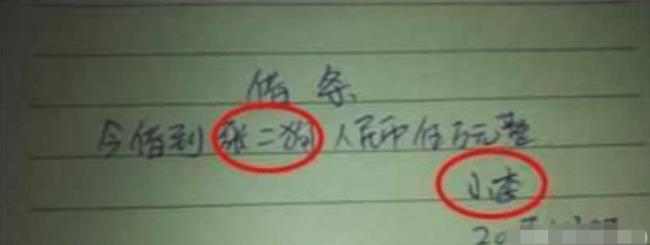 借条
今借到张二狗人民币伍万元整
小李
20